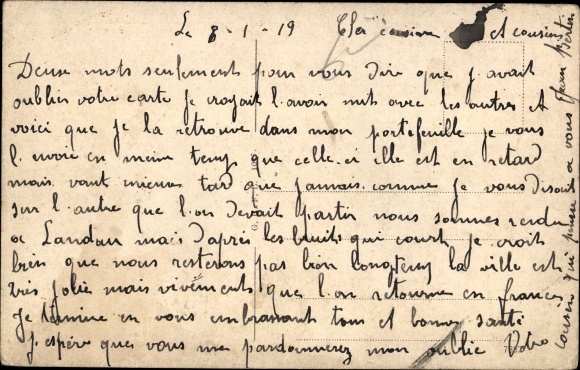 Le 8-1-19 Cher cousine et cousins
Deuse mots seulements pour vous dire que j avait
oublier votre carte je croyait l.avoir mit avec les autres et
voici que je la retrouve dans mon portefeuille je vous
l. envoie en meme temp que celle-ci elle est en retard
mais vaut mieux tard que jamais comme je vous disait
sur l. autre que l.on devait partir nous sommes rendu
a Landau mais d'après les bruits qui court je croit
bien que nous resterons pas bien longtemp la ville est
très jolie mais vivements que l.on retourne en france
je termine en vous embrassant tous et bonne santé
j.espère que vous me pardonnerez mon oublie Votre
cousin qui pense a vous